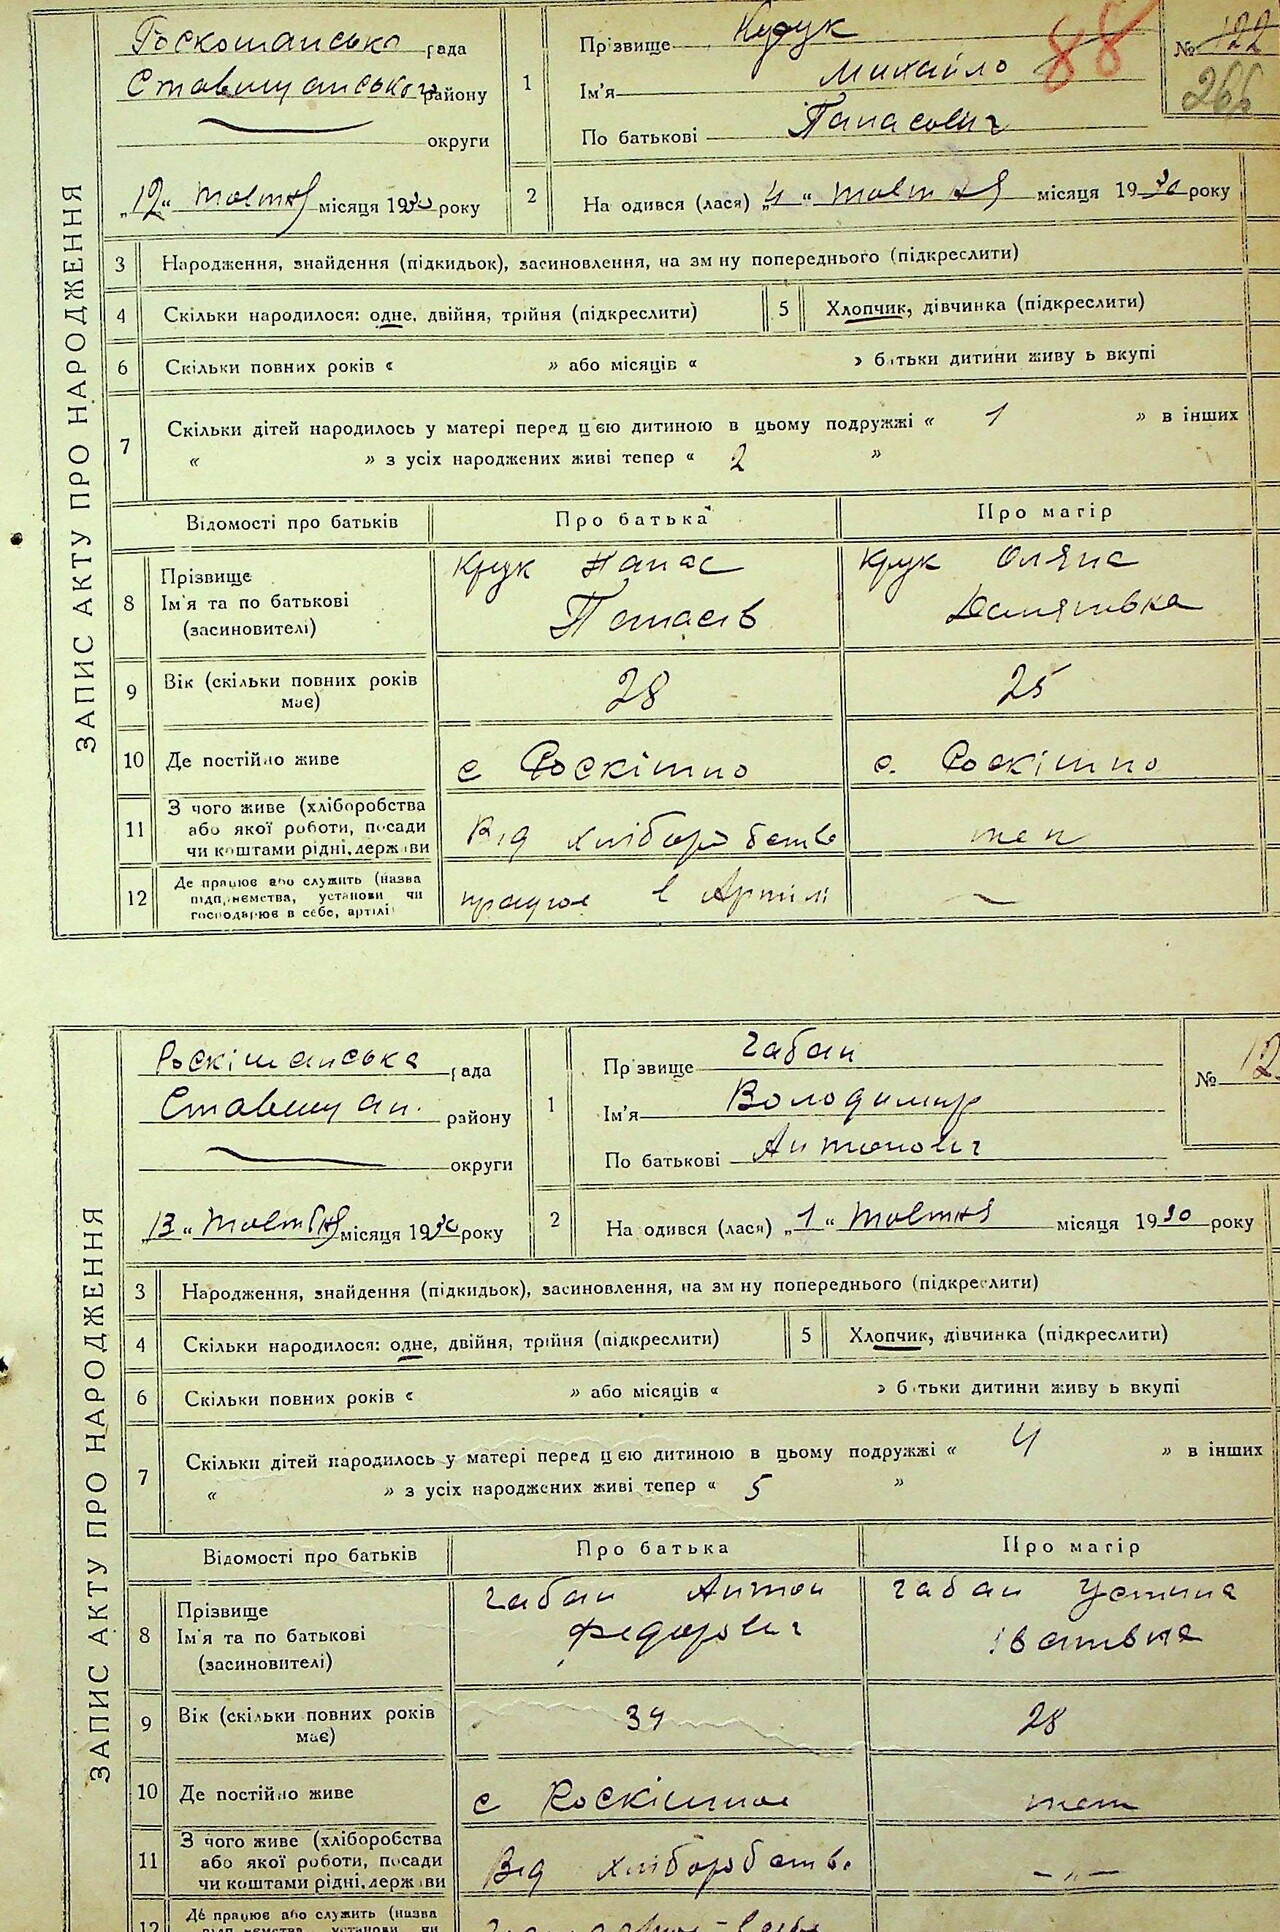 ЗАПИС АКТУ ПРО НАРОДЖЕННЯ
рада
Ставищанського району
округи
"12" жовтня місяця 1930 року
1
Прізвище Крук
Ім'я Михайло
По батькові Панасович
88
№ 122
266
2
На одився (лася) "4" жовтня місяця 1930 року
3 Народження, знайдення (підкидьок), засиновлення, на зм ну попереднього (підкреслити)
4 Скільки народилося: одне, двійня, трійня (підкреслити)
5 Хлопчик, дівчинка (підкреслити)
6 Скільки повних років « » або місяців « » батьки дитини живу ь вкупі
7 Скільки дітей народилось у матері перед цією дитиною в цьому подружжі « 1 » в інших
« » з усіх народжених живі тепер « 2 »
Відомості про батьків Про батька Про матір
8 Прізвище
Ім'я та по батькові
(засиновителі)
Крук Панас
Крук Оляна
9 Вік (скільки повних років має)
28
25
10 Де постійно живе
с Роскішно
с. Роскішно
11 З чого живе (хліборобства
або якої роботи, посади
чи коштами рідні, держави
Від хліборобства
12 Де працює або служить (назва
підприємства, установи чи
господарює в себе, артілі
працює в Артілі
ЗАПИС АКТУ ПРО НАРОДЖЕННЯ
Роскішанська рада
Ставищан. району
округи
"13" жовтня місяця 1930 року
1
Прізвище Чабан
Ім'я Володимир
По батькові Антонович
№ 12
2
На одився (лася) "1" жовтня місяця 1930 року
3 Народження, знайдення (підкидьок), засиновлення, на зм ну попереднього (підкреслити)
4 Скільки народилося: одне, двійня, трійня (підкреслити)
5 Хлопчик, дівчинка (підкреслити)
6 Скільки повних років « » або місяців « » батьки дитини живу ь вкупі
7 Скільки дітей народилось у матері перед цією дитиною в цьому подружжі « 4 » в інших
« » з усіх народжених живі тепер « 5 »
Відомості про батьків Про батька Про матір
8 Прізвище
Ім'я та по батькові
(засиновителі)
Чабан Антон
Федорович
Чабан Устина
Іванівна
9 Вік (скільки повних років має)
28
10 Де постійно живе
с Роскішное
11 З чого живе (хліборобства
або якої роботи, посади
чи коштами рідні, держави
Від хліборобства
- " -
12 Де працює або служить (назва